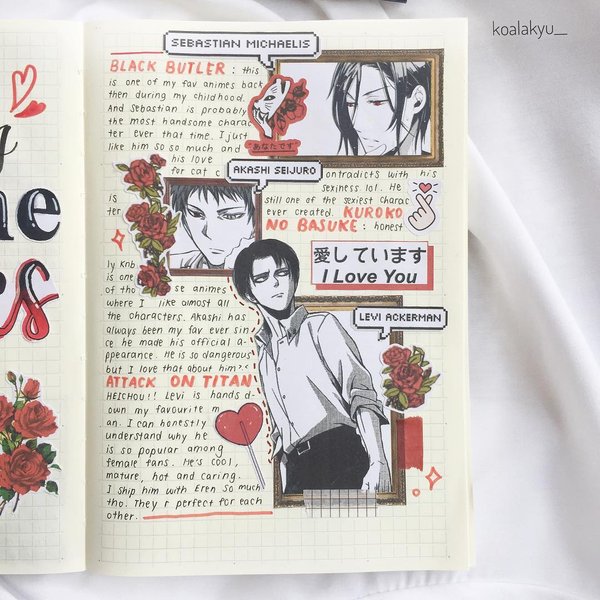 koalakyu__
SEBASTIAN MICHAELIS
BLACK BUTLER : this
is one of my fav animes back
then during my childhood.
And Sebastian is probably
the most handsome charac
ter ever that time. I just
like him so so much and
his love
for cat contradicts with his
sexiness lol. He
is still one of the sexiest charac
ter ever created. KUROKO
NO BASUKE : honest
あなたです
AKASHI SEIJURO
愛しています
I Love You
ly Knb
is one
of tho se animes
where I like almost all
the characters. Akashi has
always been my fav ever sin
ce he made his official a-
ppearance. He is so dangerous
but I love that about him
ATTACK ON TITAN
HEICHOU!! Levi is hands d-
own my favourite m
an. I can honestly
understand why he
is so popular among
female fans. He's cool,
mature, hot and caring.
I ship him with Eren so much
tho. They r perfect for each
other.
LEVI ACKERMAN